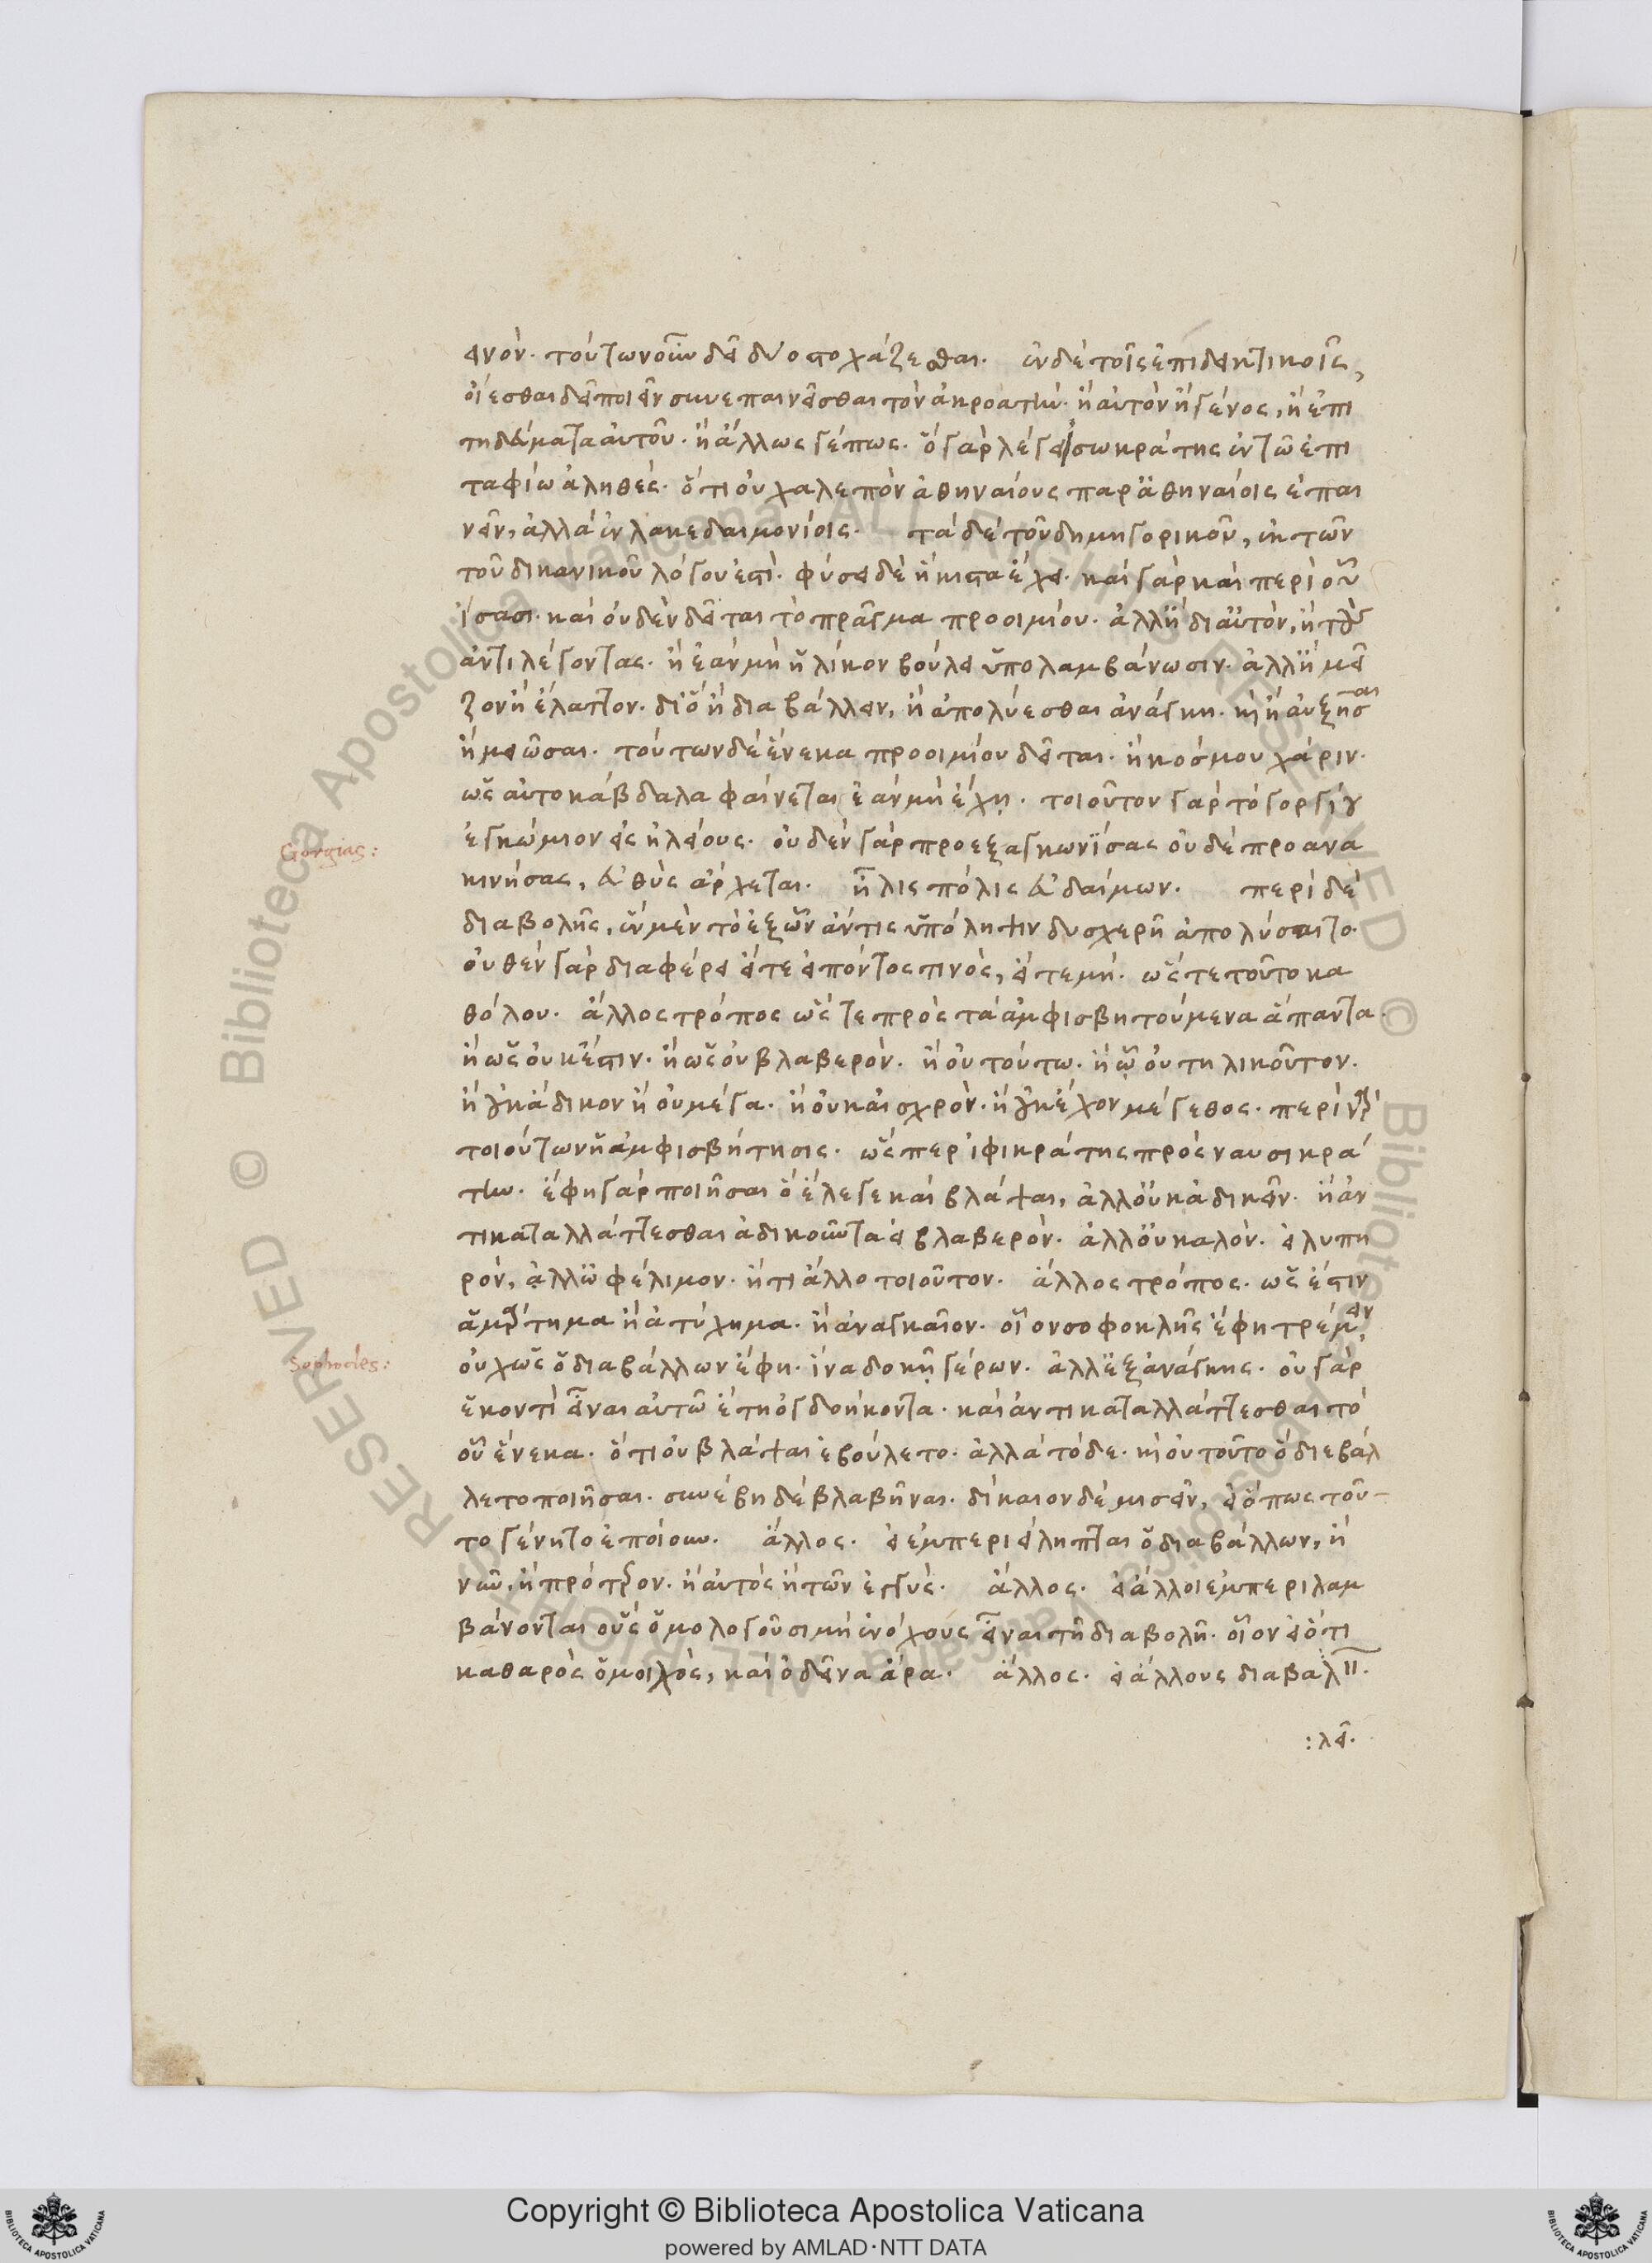 εινόν. τούτων οὖν δεῖ δύο στοχάζεσθαι. ἐν δὲ τοῖς ἐπιδεικτικοῖς,
οἴεσθαι δεῖ ποιεῖν συνεπαινεῖσθαι τὸν ἀκροατὴν. ἢ αὐτὸν ἢ γένος, ἢ ἐπι
τηδεύματα αὐτοῦ. ἢ ἄλλως γέ πως. ὃ γὰρ λέγει σωκράτης ἐν τῶ ἐπι
ταφίω ἀληθές. ὅτι οὐ χαλεπὸν ἀθηναίους παρ' ἀθηναίοις ἐπαι
νεῖν, ἀλλὰ ἐν λακεδαιμονίοις. τὰ δὲ τοῦ δημηγορικοῦ, ἐκ τῶν
τοῦ δικανικοῦ λόγου ἐστὶ. φύσει δὲ ἥκιστα ἔχει. καὶ γὰρ καὶ περὶ οὗ
ἴσασι. καὶ οὐδὲν δεῖται τὸ πρᾶγμα προοιμίου. ἀλλ' ἢ δι' αὐτὸν, ἢ τοὺς
ἀντιλέγοντας. ἢ ἐὰν μὴ ἡλίκον βούλει ὑπολαμβάνωσιν. ἀλλ' ἢ μεῖ
ζον ἢ ἔλαττον. διὸ ἢ διαβάλλειν, ἢ ἀπολύεσθαι ἀνάγκη. καὶ ἢ αὐξῆσαι
ἢ μειῶσαι. τούτων δὲ ἕνεκα προοιμίου δεῖται. ἢ κόσμου χάριν.
ὡς αὐτοκάβδαλα φαίνεται ἐὰν μὴ ἔχῃ. τοιοῦτον γὰρ τὸ γοργίου
ἐγκώμιον εἰς ἠλείους. οὐδὲν γὰρ προεξαγκωνίσας οὐδὲ προανα
κινήσας, εὐθὺς ἄρχεται. ἦλις πόλις εὐδαίμων. περὶ δὲ
διαβολῆς, ἓν μὲν τὸ ἐξ ὧν ἄν τις ὑπόληψιν δυσχερῆ ἀπολύσαιτο.
οὐθὲν γὰρ διαφέρει εἴτε εἰπόντος τινός, εἴτε μή. ὥστε τοῦτο κα
θόλου. ἄλλος τρόπος ὥστε πρὸς τὰ ἀμφισβητούμενα ἀπαντᾶ.
ἢ ὡς οὐκ ἔστιν. ἢ ὡς οὐ βλαβερόν. ἢ οὐ τούτω. ἢ ὡς οὐ τηλικοῦτον.
ἢ οὐκ ἄδικον ἢ οὐ μέγα. ἢ οὐκ αἰσχρόν. ἢ οὐκ ἔχον μέγεθος. περὶ γὰρ
τοιούτων ἡ ἀμφισβήτησις. ὥσπερ ἰφικράτης πρὸς ναυσικρά
την. ἔφη γὰρ ποιῆσαι ὃ ἔλεγε καὶ βλάψαι, ἀλλ' οὐκ ἀδικεῖν. ἢ ἀν
τικαταλλάττεσθαι ἀδικοῦντα εἰ βλαβερὸν. ἀλλ' οὐ καλόν. εἰ λυπη
ρὸν, ἀλλ' ὠφέλιμον. ἤ τι ἄλλο τοιοῦτον. ἄλλος τρόπος. ὡς ἔστιν
ἁμάρτημα ἢ ἀτύχημα. ἢ ἀναγκαῖον. οἷον σοφοκλῆς ἔφη τρέμειν,
οὐχ ὡς ὁ διαβάλλων ἔφη. ἵνα δοκῇ γέρων. ἀλλ' ἐξ ἀνάγκης. οὐ γὰρ
ἑκοντὶ εἶναι αὐτῶ ἔτη ὀγδοήκοντα. καὶ ἀντικαταλλάττεσθαι τὸ
οὗ ἕνεκα. ὅτι οὐ βλάψαι ἐβούλετο. ἀλλὰ τόδε. καὶ οὐ τοῦτο ὃ διεβάλ
λετο ποιῆσαι. συνέβη δὲ βλαβῆναι. δίκαιον δὲ μισεῖν, εἰ ὅπως τοῦ-
το γένηται ἐποίουν. ἄλλος. εἰ ἐμπεριείληπται ὁ διαβάλλων, ἢ
νῦν, ἢ πρότερον. ἢ αὐτὸς ἢ τῶν ἐγγύς. ἄλλος. εἰ ἄλλοι ἐμπεριλαμ
βάνονται οὓς ὁμολογοῦσι μὴ ἐνόχους εἶναι τῆ διαβολῆ. οἷον εἰ ὅτι
καθαρὸς ὁ μοιχὸς, καὶ ὁ δεῖνα ἄρα. ἄλλος. εἰ ἄλλους διαβαλ
: λεῖ.
Gorgias:
Sophocles:
Copyright © Biblioteca Apostolica Vaticana
powered by AMLAD·NTT DATA